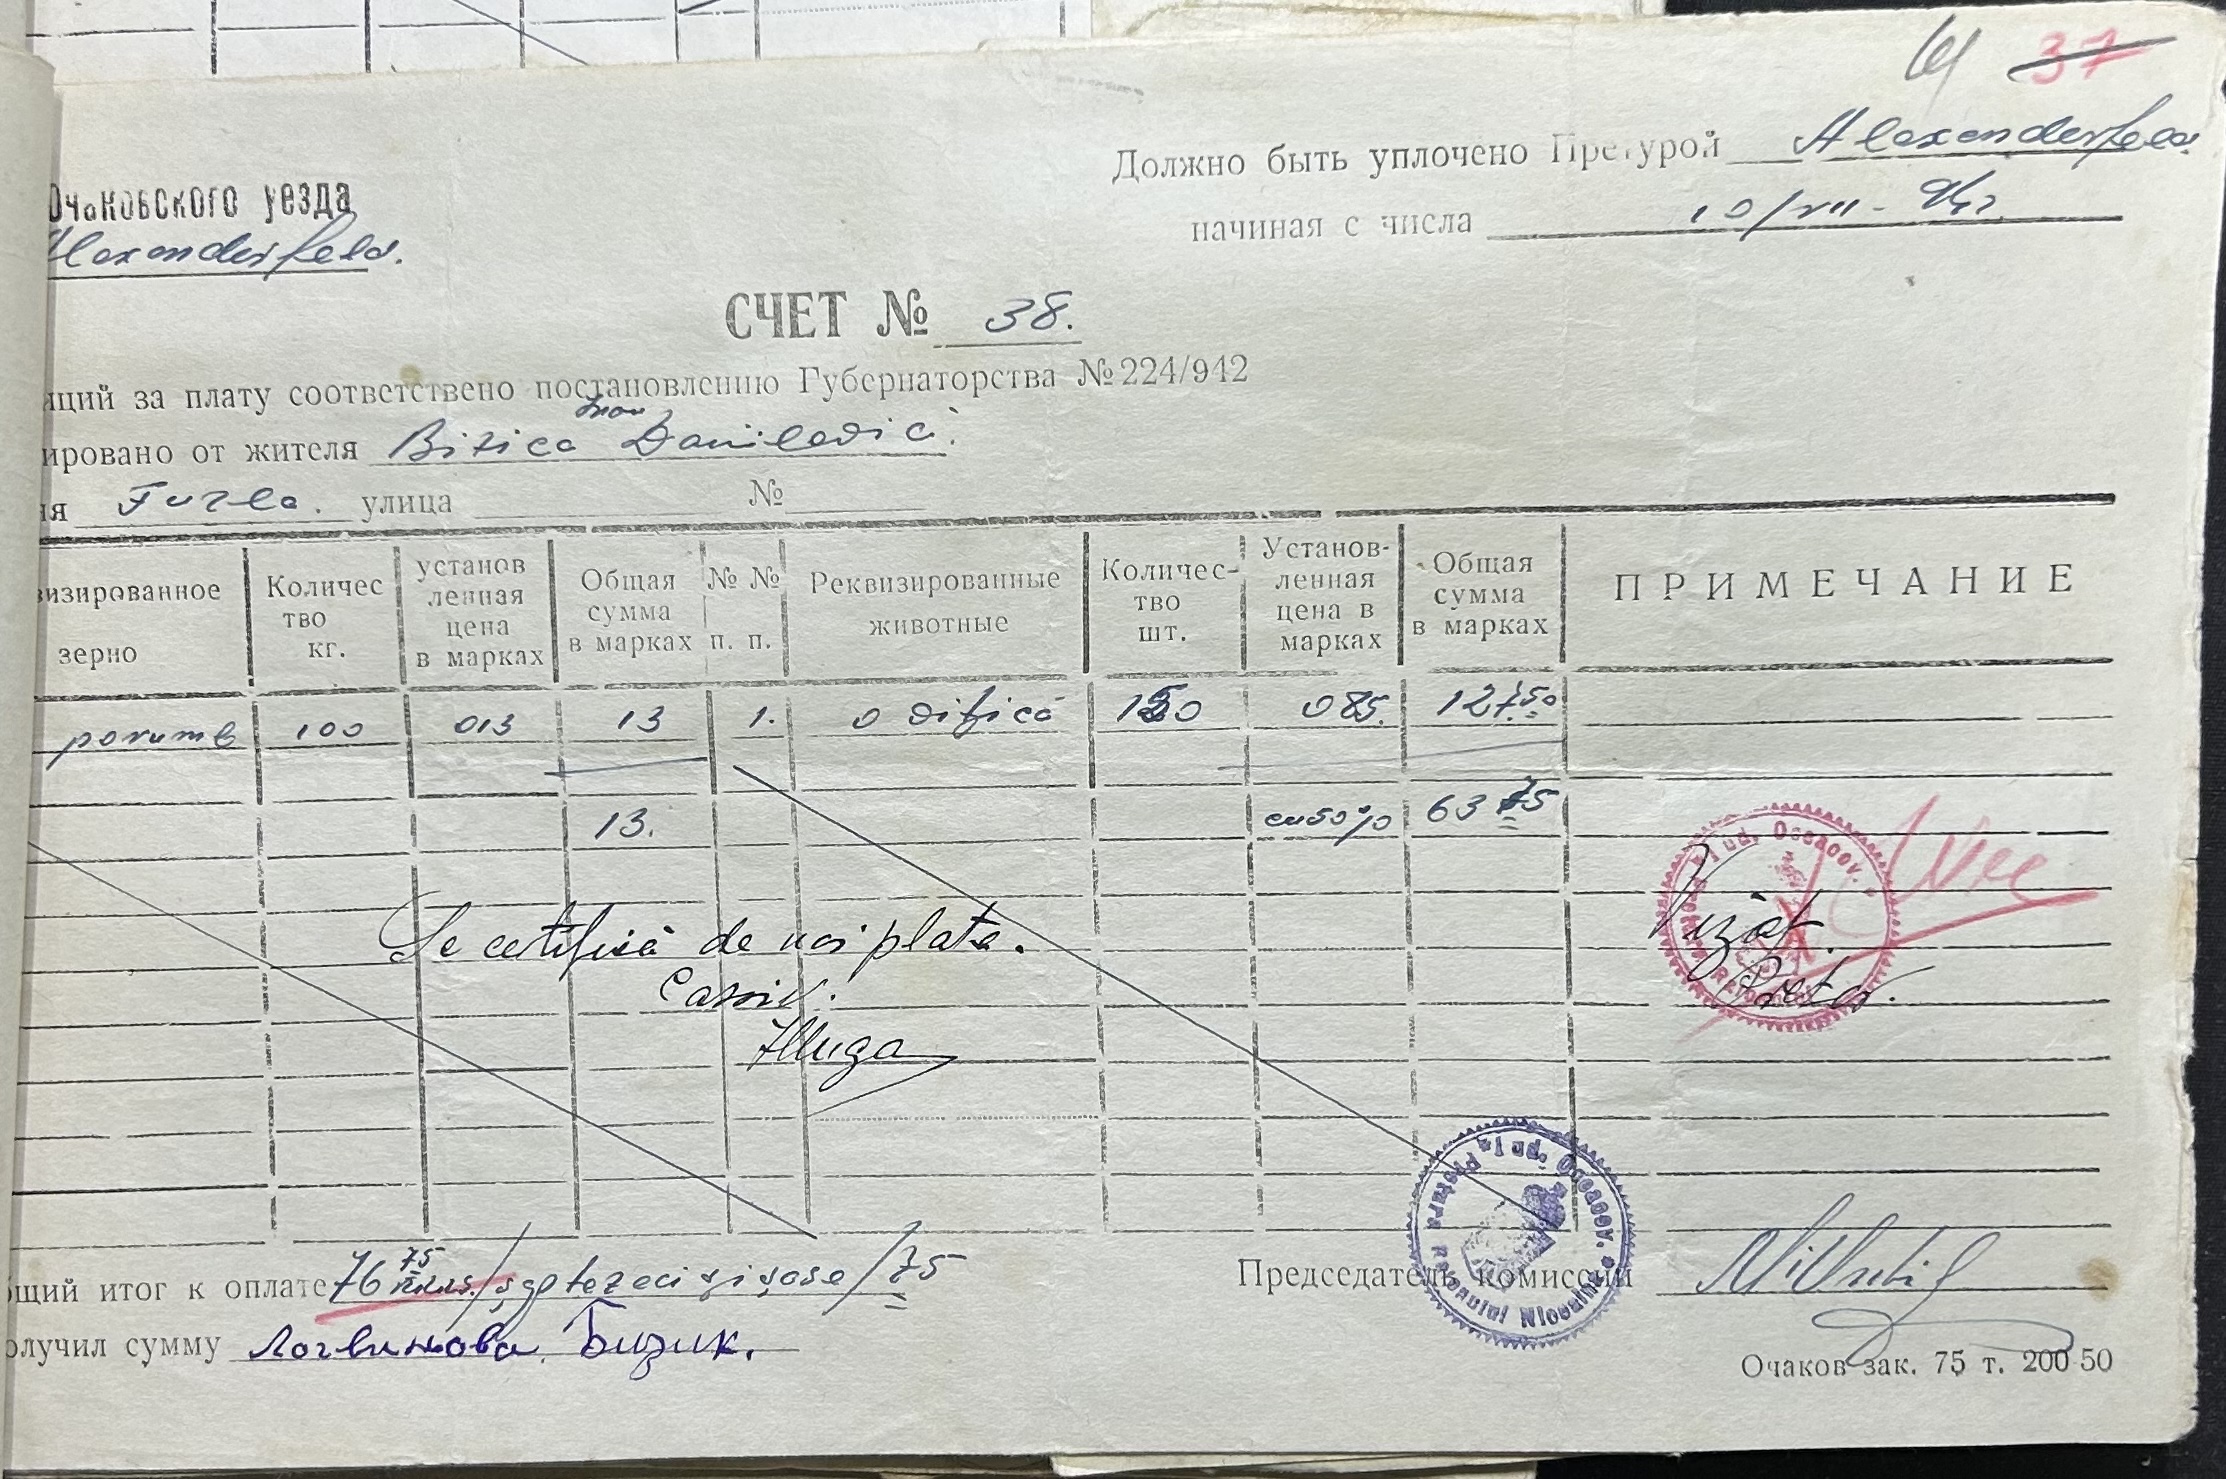 37
Должно быть уплочено Претурой Alexanderfeld.
Очаковского уезда
начиная с числа 10/VII-
Alexanderfeld.
СЧЕТ № 38.
яций за плату соответствено постановлению Губернаторства № 224/942
ировано от жителя Bizica Danilovici.
ия улица №
визированное зерно Количес тво кг. установ ленная цена в марках Общая сумма в марках №№ п. п. Реквизированные животные Количес- тво шт. Установ- ленная цена в марках Общая сумма в марках ПРИМЕЧАНИЕ
porumb 100 013 13 1. 150 085. 127.50
13. cu 50% 63 75
Se certifică de noi plata.
Casier.
Vizat.
Pretor.
Pretura Raionului Jud. Oceacov.
Pretura Raionului Jud. Oceacov.
бщий итог к оплате 76 75 /șaptezeci și șase/75
Председатель комиссии
олучил сумму Логвинова Бизик.
Очаков зак. 75 т. 200-50